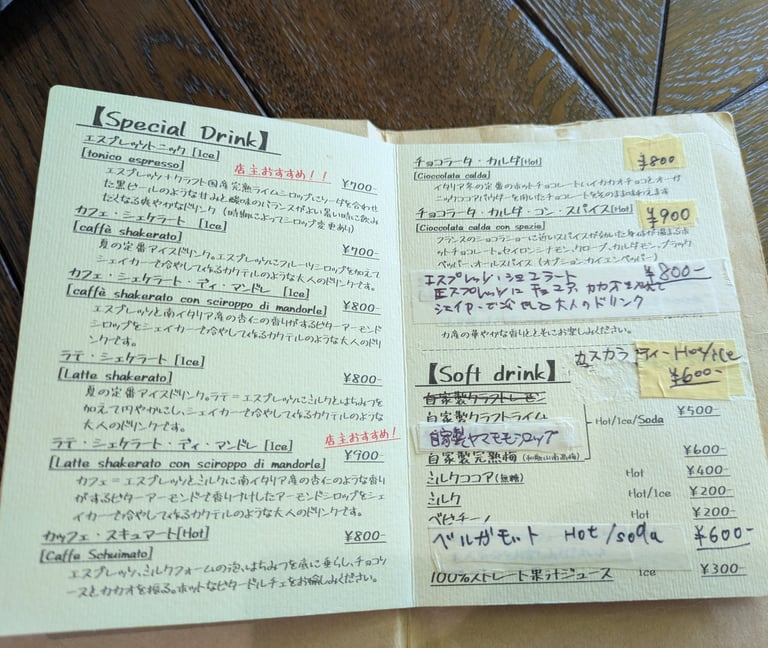 【Special Drink】
エスプレッソトニック [Ice]
[tonico espresso]
店主おすすめ！！
エスプレッソ+クラフト国産完熟ライムシロップにソーダを合わせ
¥700-
た黒ビールのような甘みと酸味のバランスがよい暑い時に飲み
たくなる爽やかなドリンク (時期によってシロップ変更あり)
カフェ・シェケラート [Ice]
[caffè shakerato]
¥700-
夏の定番アイスドリンク。エスプレッソにフルーツシロップを加えて
シェイカーで冷やして作るカクテルのような大人のドリンクです。
カフェ・シェケラート・ディ・マンドレ [Ice]
[caffè shakerato con sciroppo di mandorle]
¥800-
エスプレッソと南イタリア産の杏仁の香りがするビターアーモンド
シロップをシェイカーで冷やして作るカクテルのような大人のドリ
ンクです。
ラテ・シェケラート [Ice]
[Latte shakerato]
¥800-
夏の定番アイスドリンク。ラテ=エスプレッソにミルクとはちみつを
加えて円やかにし、シェイカーで冷やして作るカクテルのような
大人のドリンクです。
店主おすすめ!
ラテ・シェケラート・ディ・マンドレ [Ice]
[Latte shakerato con sciroppo di mandorle]
¥900-
カフェ=エスプレッソとミルクに南イタリア産の杏仁のような香り
がするビターアーモンドで香り付けしたアーモンドシロップをシェ
イカーで冷やして作るカクテルのような大人のドリンクです。
カッフェ・スキュマート[Hot]
¥800-
[Caffe Schuimato]
エスプレッソ、ミルクフォームの泡、はちみつを底に垂らし、チョコソ
ースとカカオを振る。ホットなビタードルチェをお愉しみください。
チョコラータ・カルダ[Hot]
¥800
[Cioccolata calda]
イタリア冬の定番のホットチョコレート
ニックココアパウダーを用いたチョコレートをそのまま味わえます
チョコラータ・カルダ・コン・スパイス[Hot]
¥900
[Cioccolata calda con spezie]
フランスのショコラショーに近いスパイスが効いた
ットチョコレート。セイロンシナモン、クローブ、カルダモン、ブラック
ペッパー、オールスパイス (オプションカイエンペッパー)
エスプレッソ・ショコラート ¥800-
エスプレッソに チョコア、カカオを加えて
シェイカーで冷やした大人のドリンク
力産の華やかな香りとともにお楽しみください。
カスカラ ティー Hot/Ice
¥600-
【Soft drink】
自家製クラフトレモン
自家製クラフトライム
Hot/Ice/Soda
¥500-
自家製ヤマモモシロップ
自家製完熟梅 (和歌山南高梅)
¥600-
ミルクココア(無糖) Hot ¥400-
ミルク Hot/Ice ¥200-
ベビチーノ Hot ¥200-
ベルガモット Hot/soda ¥600-
100%ストレート果汁ジュース Ice ¥300-